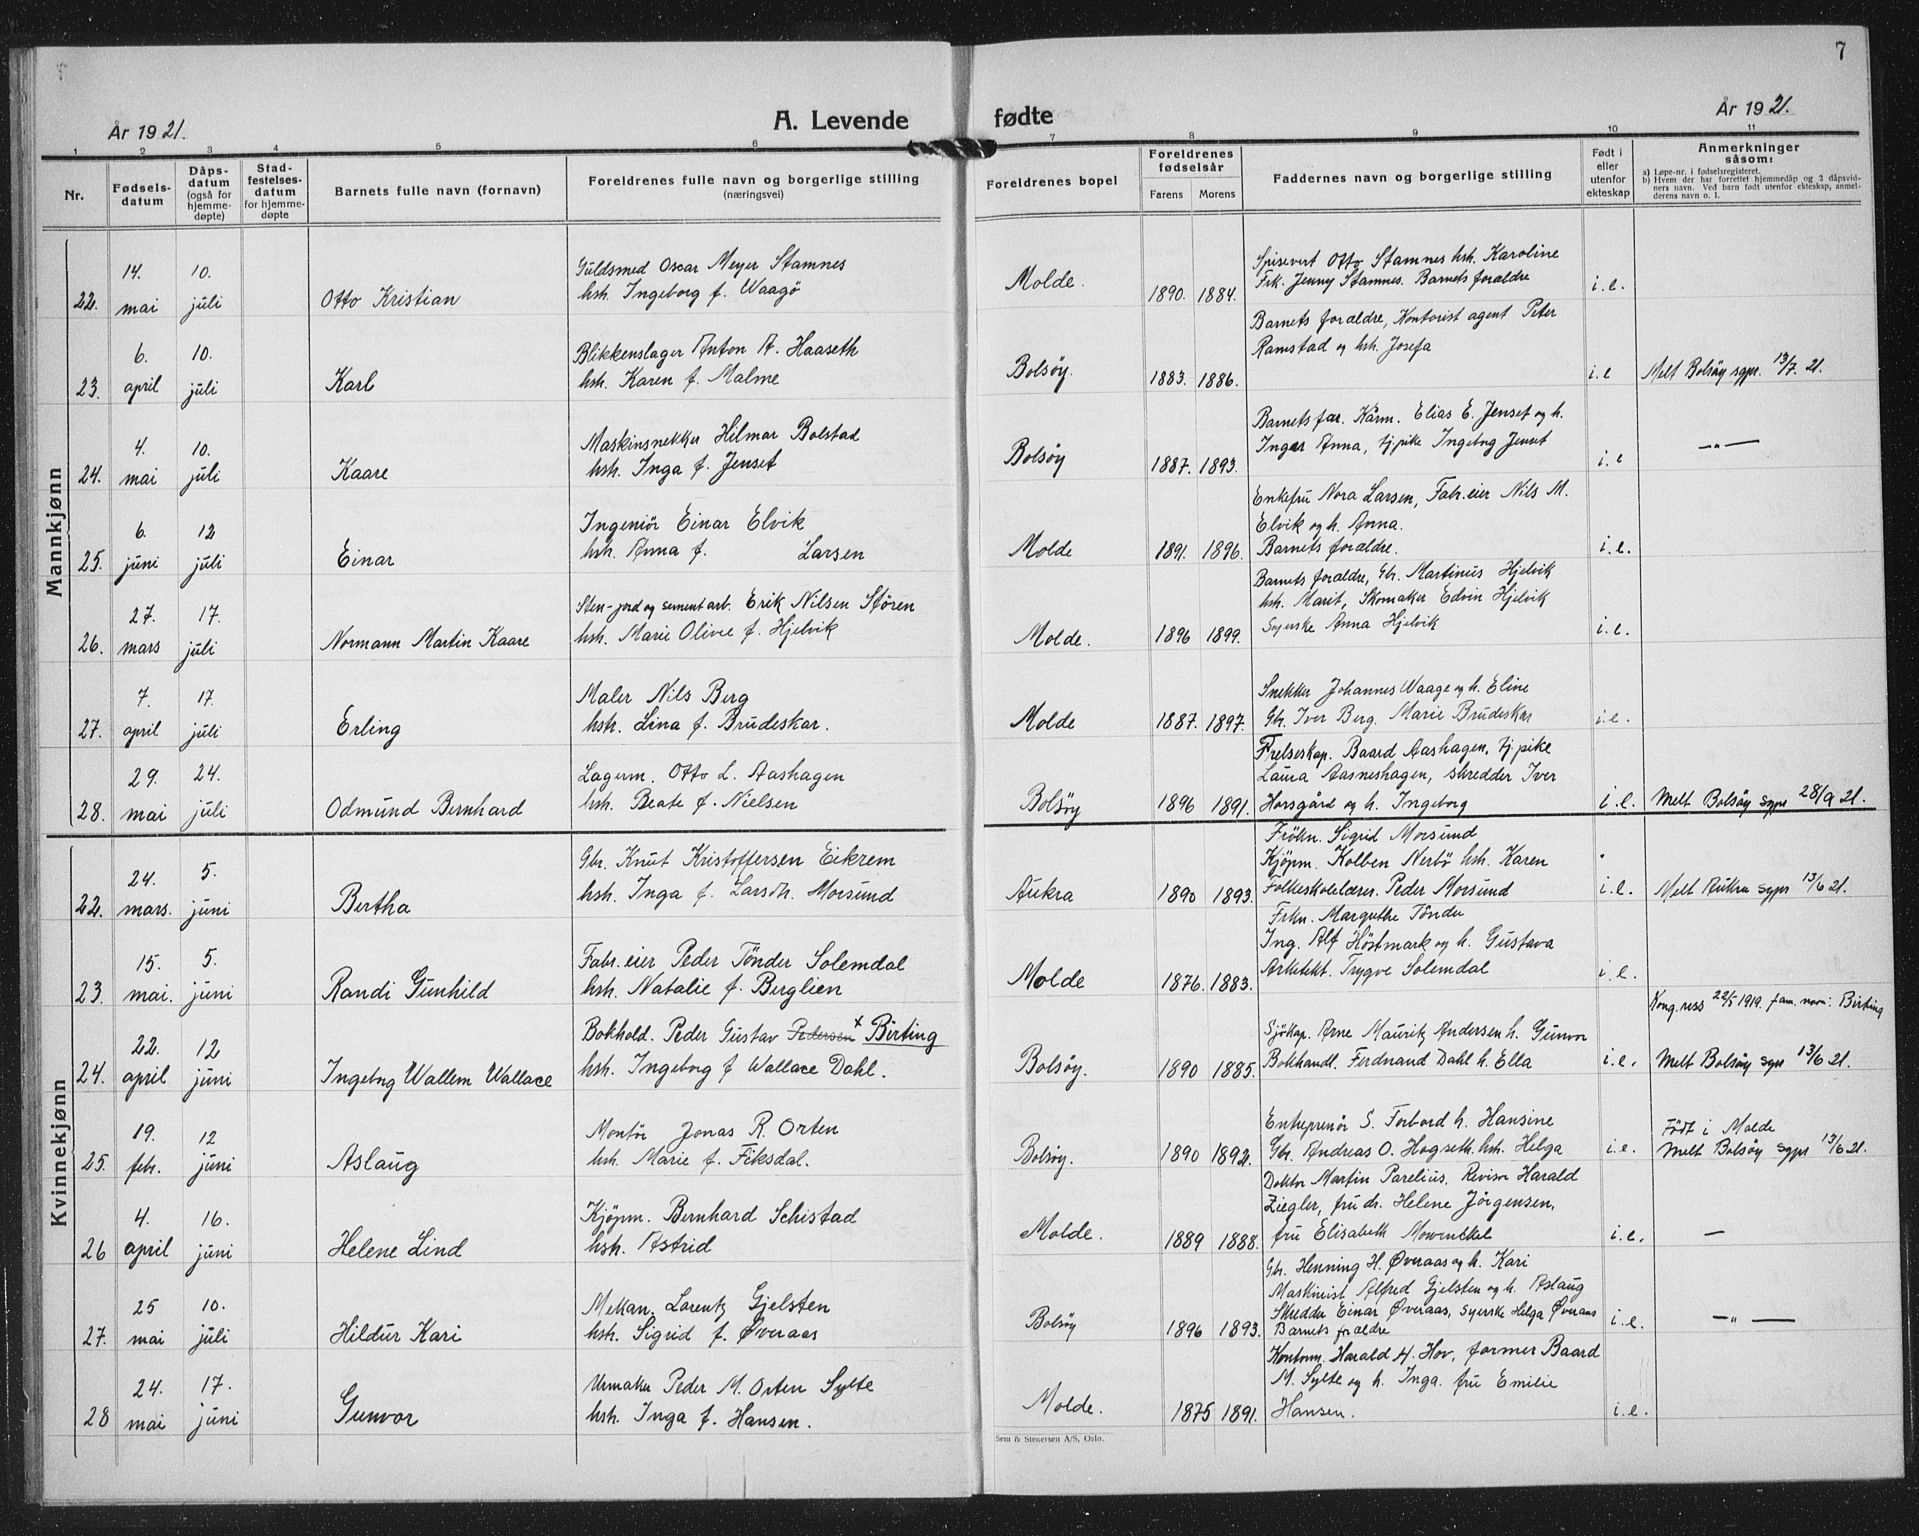 7
År 1921.
A. Levende
fødte
År 1921.
1 2 3 4 5 6 7 8 9 10 11
Nr.
Fødsels-
datum
Dåps-
datum
(også for
hjemme-
døpte)
Stad-
festelses-
datum
for hjemme-
døpte
Barnets fulle navn (fornavn)
Foreldrenes fulle navn og borgerlige stilling
(næringsvei)
Foreldrenes bopel
Foreldrenes
fødselsår
Farens Morens
Faddernes navn og borgerlige stilling
Født i
eller
utenfor
ekteskap
Anmerkninger
såsom:
a) Løpe-nr. i fødselsregisteret.
b) Hvem der har forrettet hjemmedåp og 2 dåpsvid-
ners navn. Ved barn født utenfor ekteskap, anmel-
derens navn o. l.
Mannkjønn
22. 14. mai 10. juli Otto Kristian
Guldsmed Oscar Meyer Stamnes
hsh. Ingeborg f. Waagö
Molde. 1890. 1884.
Spisevert Otto Stamnes hsh. Karoline
Frk. Jenny Stamnes. Barnets foraldre
i.e.
23. 6. april 10. juli Karl
Blikkenslager Anton A. Haaseth
hsh. Karen f. Malme
Bolsöy. 1883. 1886.
Barnets foraldre, Kontorist agent Peter
Ramstad og hsh. Josefa
i.e Melt Bolsöy sgpr. 13/7. 21.
24. 4. mai 10. juli Kaare
Maskinsnekker Hilmar Bolstad
hsh. Inga f. Jenset
Bolsöy 1887. 1893.
Barnets far. Kårm. Elias E. Jenset og h.
Inger Anna, tj.pike Ingebrg Jenset
i.e —"—
25. 6. juni 12 juli Einar
Ingeniör Einar Elvik
hsh. Anna f. Larsen
Molde 1891. 1896.
Enkefru Nora Larsen, Fabr.eier Nils M.
Elvik og h. Anna.
Barnets foraldre.
i.e.
26. 27. mars 17. juli Normann Martin Kaare
Sten-jord og sementarb. Erik Nilsen Stören
hsh. Marie Olivie f. Hjelvik
Molde. 1896 1899.
Barnets foraldre, Gbr. Martinus Hjelvik
hsh. Marit, Skomaker Edvin Hjelvik
Syerske Anna Hjelvik
i.e.
27. 7. april 17. juli Erling
Maler Nils Berg
hsh. Lina f. Brudeskar.
Molde 1887. 1897.
Snekker Johannes Waage og h. Eline
Gb. Iver Berg. Marie Brudeskar
i.e.
28. 29. mai 24. juli Odmund Bernhard
Lagerm. Otto L. Aashagen
hsh. Beate f. Nielsen
Bolsöy 1896 1891.
Frelseskap. Baard Aashagen, tj.pike
Laura Aasneshagen, skredder Iver
Horsgård og h. Ingeborg
i.e. Melt Bolsöy sgpr 28/9 21.
Kvinnekjønn
22. 24. mars. 5. juni Bertha
Gbr. Knut Kristoffersen Eikrem
hsh. Inga f. Larsdh. Morsund
Aukra 1890 1893.
Frökn. Sigrid Morsund
Kjöpm. Kolben Nerbö hsh. Karen
Folkeskolelærer Peder Morsund
i.e. Melt Aukra sgpr 13/6 21.
23. 15. mai. 5. juni Randi Gunhild
Fabr.eier Peder Tönder Solemdal
hsh. Natalie f. Berglien
Molde 1876. 1883.
Frkn. Margrethe Tönder
Ing. Alf Höstmark og h. Gustava
Arkitekt. Trygve Solemdal
i.e.
24. 22. april 12 juni Ingebrg Wallem Wallace
Bokhold. Peder Gustav Pedersen x Birting
hsh. Ingeborg f Wallace Dahl.
Bolsöy. 1890 1885.
Sjökap. Arne Mauritz Andersen h. Gunvor
Bokhandl. Ferdnand Dahl h. Ella
i.e. Kong. ress 22/5 1919. fam. navn: Birting
Melt Bolsöy sgpr 13/6 21.
25. 19. febr. 12 juni Aslaug
Montör Jonas R. Orten
hsh. Marie f. Fiksdal.
Bolsöy. 1890 1892.
Entreprenör S. Forbord h. Hansine
Gbr. Andreas O. Hogseth hsh. Helga
i.e. Födt i Molde
Melt Bolsöy sgpr 13/6 21.
26 4. april 16. juni Helene Lind
Kjöpm. Bernhard Schistad
hsh. Astrid
Molde. 1889 1888.
Doktor Martin Parelius. Revisor Harald
Ziegler, fru dr. Helene Jörgensen,
fru Elisabeth Mowinckel
i.e. —
27. 25 mai 10. juli Hildur Kari
Mekan. Lorentz Gjelsten
hsh. Sigrid f. Øveraas
Bolsöy 1896 1893.
Gbr. Henning H. Øveraas og h. Kari
Maskinist Alfred Gjelsten og h. Aslaug
Skredder Einar Øveraas, syerske Helga Øveraas
Barnets foraldre
i.e. —"—
28 24. mai 17. juni Gunvor
Urmaker Peder M. Orten Sylte
hsh. Inga f. Hansen.
Molde. 1875 1891.
Kontorm. Harald H. Hov, former Baard
M. Sylte og h. Inga. fru Emilie
Hansen.
i.e.
Sem & Stenersen A/S, Oslo.